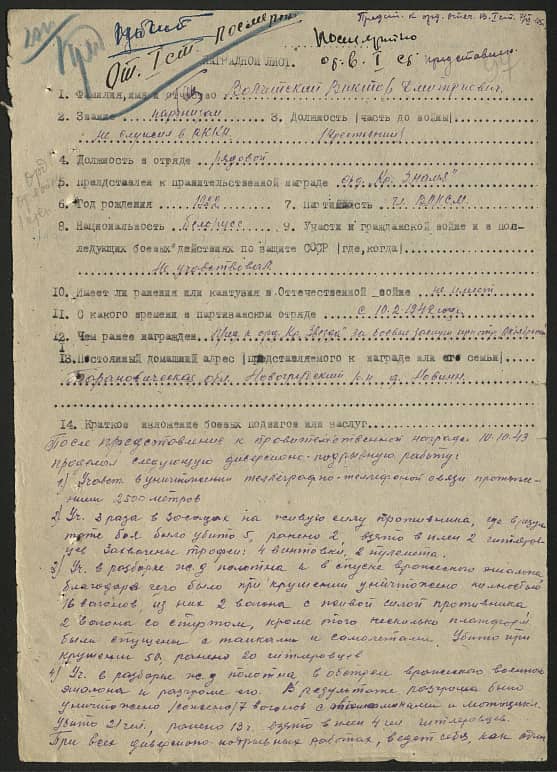 Предст. к орд. отеч. В. I ст.
От. I ст. Посмертно
Посмертно
ор. В. I ст представлен
НАГРАДНОЙ ЛИСТ.
97
1. Фамилия, имя и отчество Виктор Дмитриевич
2. Звание партизан 3. Должность (часть до войны)
не служил в РККА (Крестьянин)
4. Должность в отряде рядовой
5. Предлставлен к правительственной награде орд. Кр. Знамя"
6. Год рождения 1922 7. Партийность чл. ВЛКСМ
8. Национальность белорусс 9. Участи и гражданской войне и в пос-
ледующих боевых действиях по защите СССР (где, когда)
Не участвовал
10. Имеет ли ранения или кантузия в Оттечественной войне не имеет
11. С какого времени в партизанском отряде с 10.2.1942 года
12. Чем ранее награжден к орд. Кр. Звезда" за боевые
13. Постоянный домашний адрес (представляемого к награде или его семьи)
Барановическая обл. Новогрудский р-н д.
14. Краткое изложение боевых подвигов или заслуг
После представление к правительственной награде 10.10.43
проделал следующую диверсионо-подрывную работу:
1) Участ. в уничтожении телеграфно-телефоной связи протяже-
нием 2500 метров
2) Уч. 3 раза в засадах на живую силу противника, где в резуль
тате боя было убито 5, ранено 2, взято в плен 2 гитлеров-
цев Захвачены трофеи: 4 винтовки, 2 пулемета.
3) Уч. в разборке ж.д полотна и в спуске вражеского эшалона
благодаря чего было при крушении уничтожено полностью
16 вагонов, из них 2 вагона с живой силой противника,
2 вагона со спиртом, кроме того несколько платформ
были спущены с танками и самолетами. Убито при
крушении 50, ранено 20 гитлеровцев
4) Уч. в разборке ж.д полотна, в обстреле вражеского военного
эшалона и разгроме его. В результате разгрома было
уничтожено /сожжено/ 7 вагонов с и мотоцикл.
Убито 21 чел, ранено 13 ч. взято в плен 4 чел гитлеровцев.
При всех диверсионо-подрывных работах, ведет себя, как